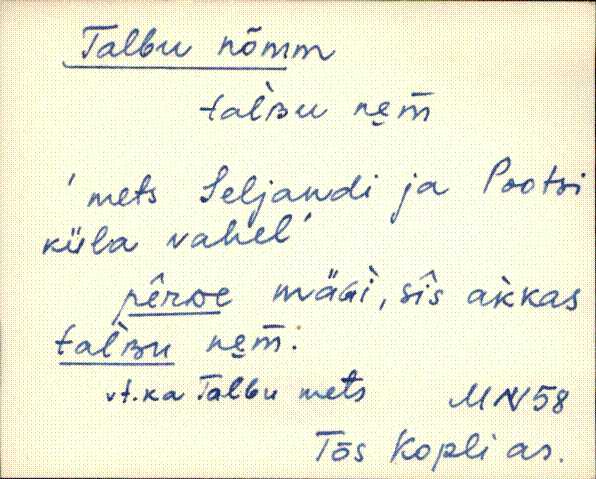 Talbu nõmm
talʙ̀u ne̮m̄
'mets Seljandi ja Pootsi
küla vahel'
pêrᴅe mäɢì, sîs ak̀kas
talʙ̀u ne̮m̄.
vt. ka Talbu mets MN 58
Tõs Kopli as.